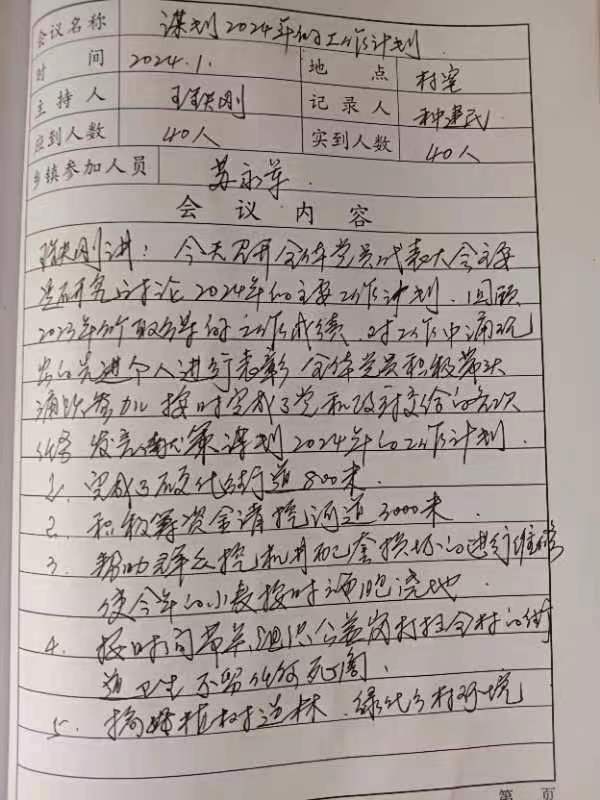 会议名称 谋划2024年的工作计划
时间 2024.1. 地点 村室
主持人 王铁刚 记录人 种建民
应到人数 40人 实到人数 40人
乡镇参加人员 苏永军.
会议内容
王铁刚讲：今天召开全体党员代表大会主要
是研究讨论2024年的主要工作计划.回顾
2023年所取得的工作成绩.对工作中涌现
出的先进个人进行表彰 全体党员积极带头
踊跃参加 按时完成了党和政府交给的各项
任务 谋划2024年的工作计划.
1. 完成了硬化街道800米.
2. 积极筹资金清挖河道3000米.
3. 帮助群众挖机井配套损坏的进行维修
使今年的小麦按时浇地.
4. 按时间 组织公益岗打扫全村的街
道卫生不留任何死角.
5. 搞好植树造林.绿化乡村环境
第 页